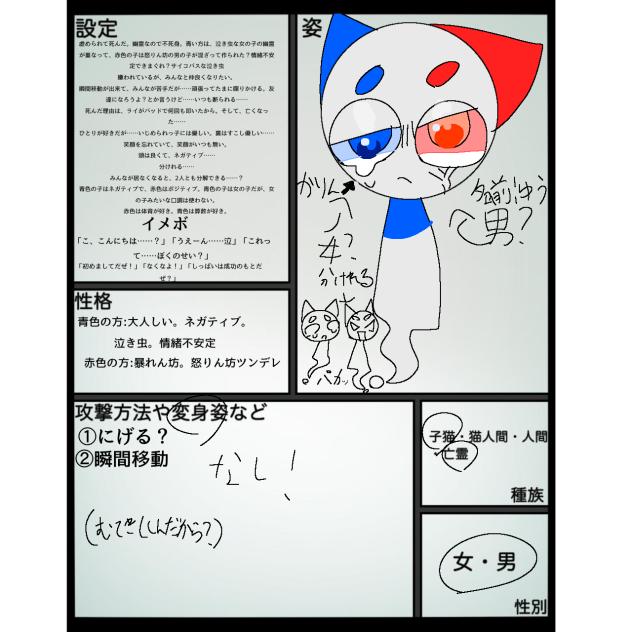 設定
虐められて死んだ、幽霊なので不死身。青い方は、泣き虫な女の子の幽霊
が重なって、赤色の子は怒りん坊の男の子が混ざって作られた？情緒不安
定できまぐれ？サイコパスな泣き虫
嫌われているが、みんなと仲良くなりたい。
瞬間移動が出来て、みんなが苦手だが……頑張ってたまに喋りかける。友
達になろうよ？とか言うけど……いつも断られる……
死んだ理由は、ライがバッドで何回も叩いたから。そして、亡くなっ
た……
ひとりが好きだが……いじめられっ子には優しい。裏はすこし優しい……
笑顔を忘れていて、笑顔がいつも無い。
頭は良くて、ネガティブ……
分けれる……
みんなが居なくなると、2人とも分解できる……？
青色の子はネガティブで、赤色はポジティブ。青色の子は女の子だが、女
の子みたいな口調は使わない。
赤色は体育が好き。青色は算数が好き。
イメボ
「こ、こんにちは……？」「うえーん……泣」「これっ
て……ぼくのせい？」
「初めましてだぜ！」「なくなよ！」「しっぱいは成功のもとだ
ぜ？」
姿
かりん
女？
分けれる
パカッ
名前 ゆう
男？
性格
青色の方:大人しい。ネガティブ。
泣き虫。情緒不安定
赤色の方:暴れん坊。怒りん坊ツンデレ
攻撃方法や変身姿など
①にげる？
②瞬間移動
なし！
(むてきしんだから？)
子猫・猫人間・人間
・亡霊
種族
女・男
性別